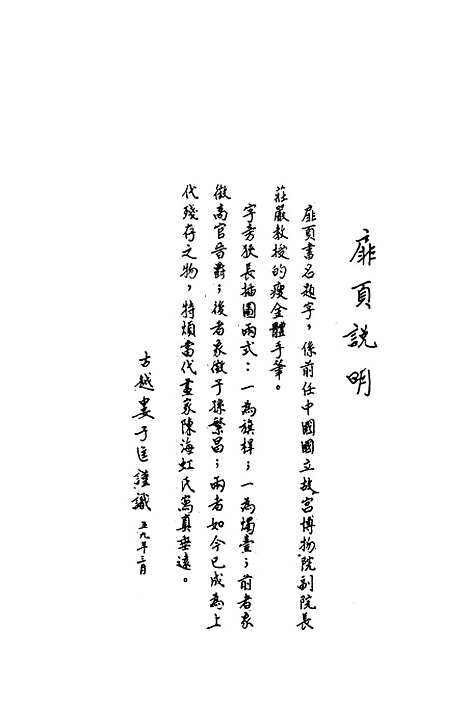 扉頁說明
扉頁書名題字，係前任中國國立故宮博物院副院長
莊嚴教授的瘦金體手筆。
字旁狹長插圖兩式：一為旗桿；一為燭臺；前者象
徵高官晉爵；後者象徵子孫繁昌；兩者如今已成為上
代殘存之物，特煩當代畫家陳海虹氏寫真垂遠。
古越婁子匡謹識 五九年三月